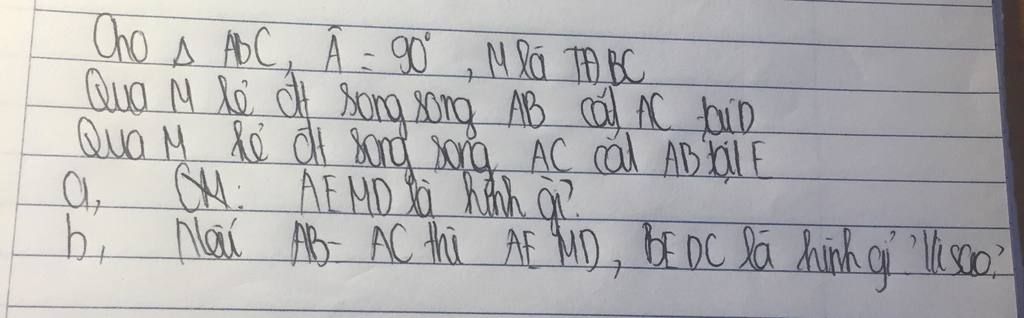 Cho Δ ABC, Â = 90°, M là TĐ BC
Qua M kẻ đt song song AB cắt AC tại D
Qua M kẻ đt song song AC cắt AB tại E
a, CM: AEMD là hình gì?
b, Nếu AB = AC thì AEMD, BEDC là hình gì? Vì sao?